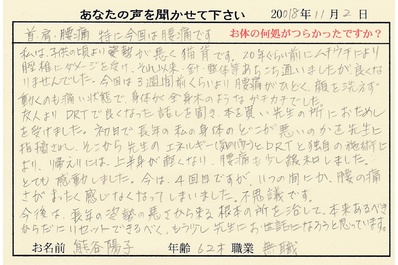 あなたの声を聞かせて下さい 2018年11月2日
首、肩、腰痛 特に今回は腰痛です お体の何処がつらかったですか？
私は、子供の頃より姿勢が悪く猫背です。20年くらい前に
腰椎にダメージを受け、それ以来、針、整体等あちこち通いましたが良くな
りませんでした。今回は3週間前くらいより腰痛がひどく、腰を
動くのも痛い状態で、身体が全身木のようなガチガチでした。
友人よりDRTで良くなった話しを聞き、本を買い先生の所におためし
を受けました。初回で長年の私の身体のどこが悪いのかを先生に
指摘され、そこから先生のエネルギーとDRTと独自の施術に
より、帰えりには、上半身が軽くなり、腰痛も少し緩和しました。
とても感動しました。今は、4回目ですが、いつの間にか、腰の痛
さがまったく感じなくなってしまいました。不思議です。
今後は、長年の姿勢の悪さから来る根本の所を治して、本来あるべき
からだにリセットできるべく、もう少し先生にお世話になろうと思っています。
お名前 熊谷陽子 年齢 62才 職業 無職